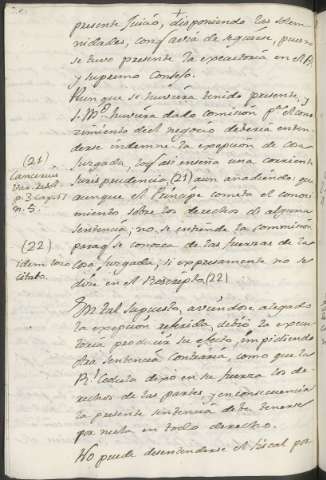 presente Juicio, disponiendo las solem-
nidades, con q.e havia de seguirse, pues no
se tuvo presente la executoria en el R.l
y supremo Consejo.
Aunque se huviera tenido presente, y
S. M.d huviera dado comision p.a el cono-
cimiento del negocio deberia enten-
derse indemne la excepcion de cosa
Juzgada, assi enseña una corriente
Jurisprudencia (21) aun añadiendo, que
aunque el Principe cometa el conoci-
miento sobre los derechos de alguna
Sentencia; no se entiende la commission
para q.e se conozca de las fuerzas de la
cosa Juzgada, si expresamente no se
dice en el Rescripto (22)
(21)
Cancerius
p. 3. cap. 17
n. 5.
(22)
idem loco
citato.
En tal supuesto, aviendose alegado
la excepcion referida debió la execu-
toria producir su efecto, impidiendo
otra sentencia contraria, como que la
R.l Cedula dexó en su fuerza los de-
rechos de las partes, y en consecuencia
la presente sentencia debe tenerse
por nula en todo derecho.
No puede desentenderse el fiscal por